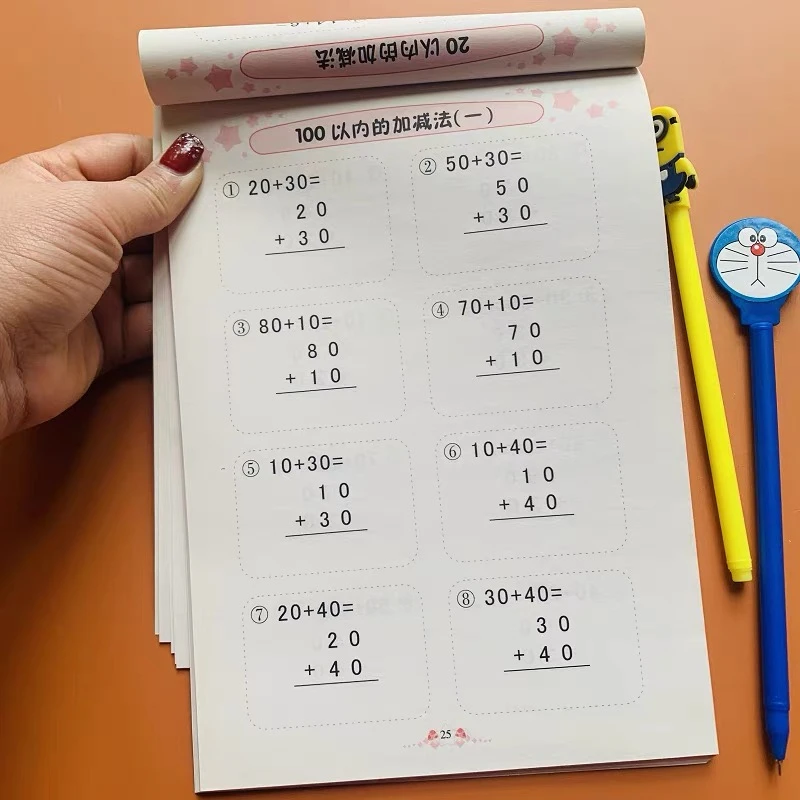 20 以内的加减法
100 以内的加减法(一)
① 20+30=
2 0
+ 3 0
② 50+30=
5 0
+ 3 0
③ 80+10=
8 0
+ 1 0
④ 70+10=
7 0
+ 1 0
⑤ 10+30=
1 0
+ 3 0
⑥ 10+40=
1 0
+ 4 0
⑦ 20+40=
2 0
+ 4 0
⑧ 30+40=
3 0
+ 4 0
25